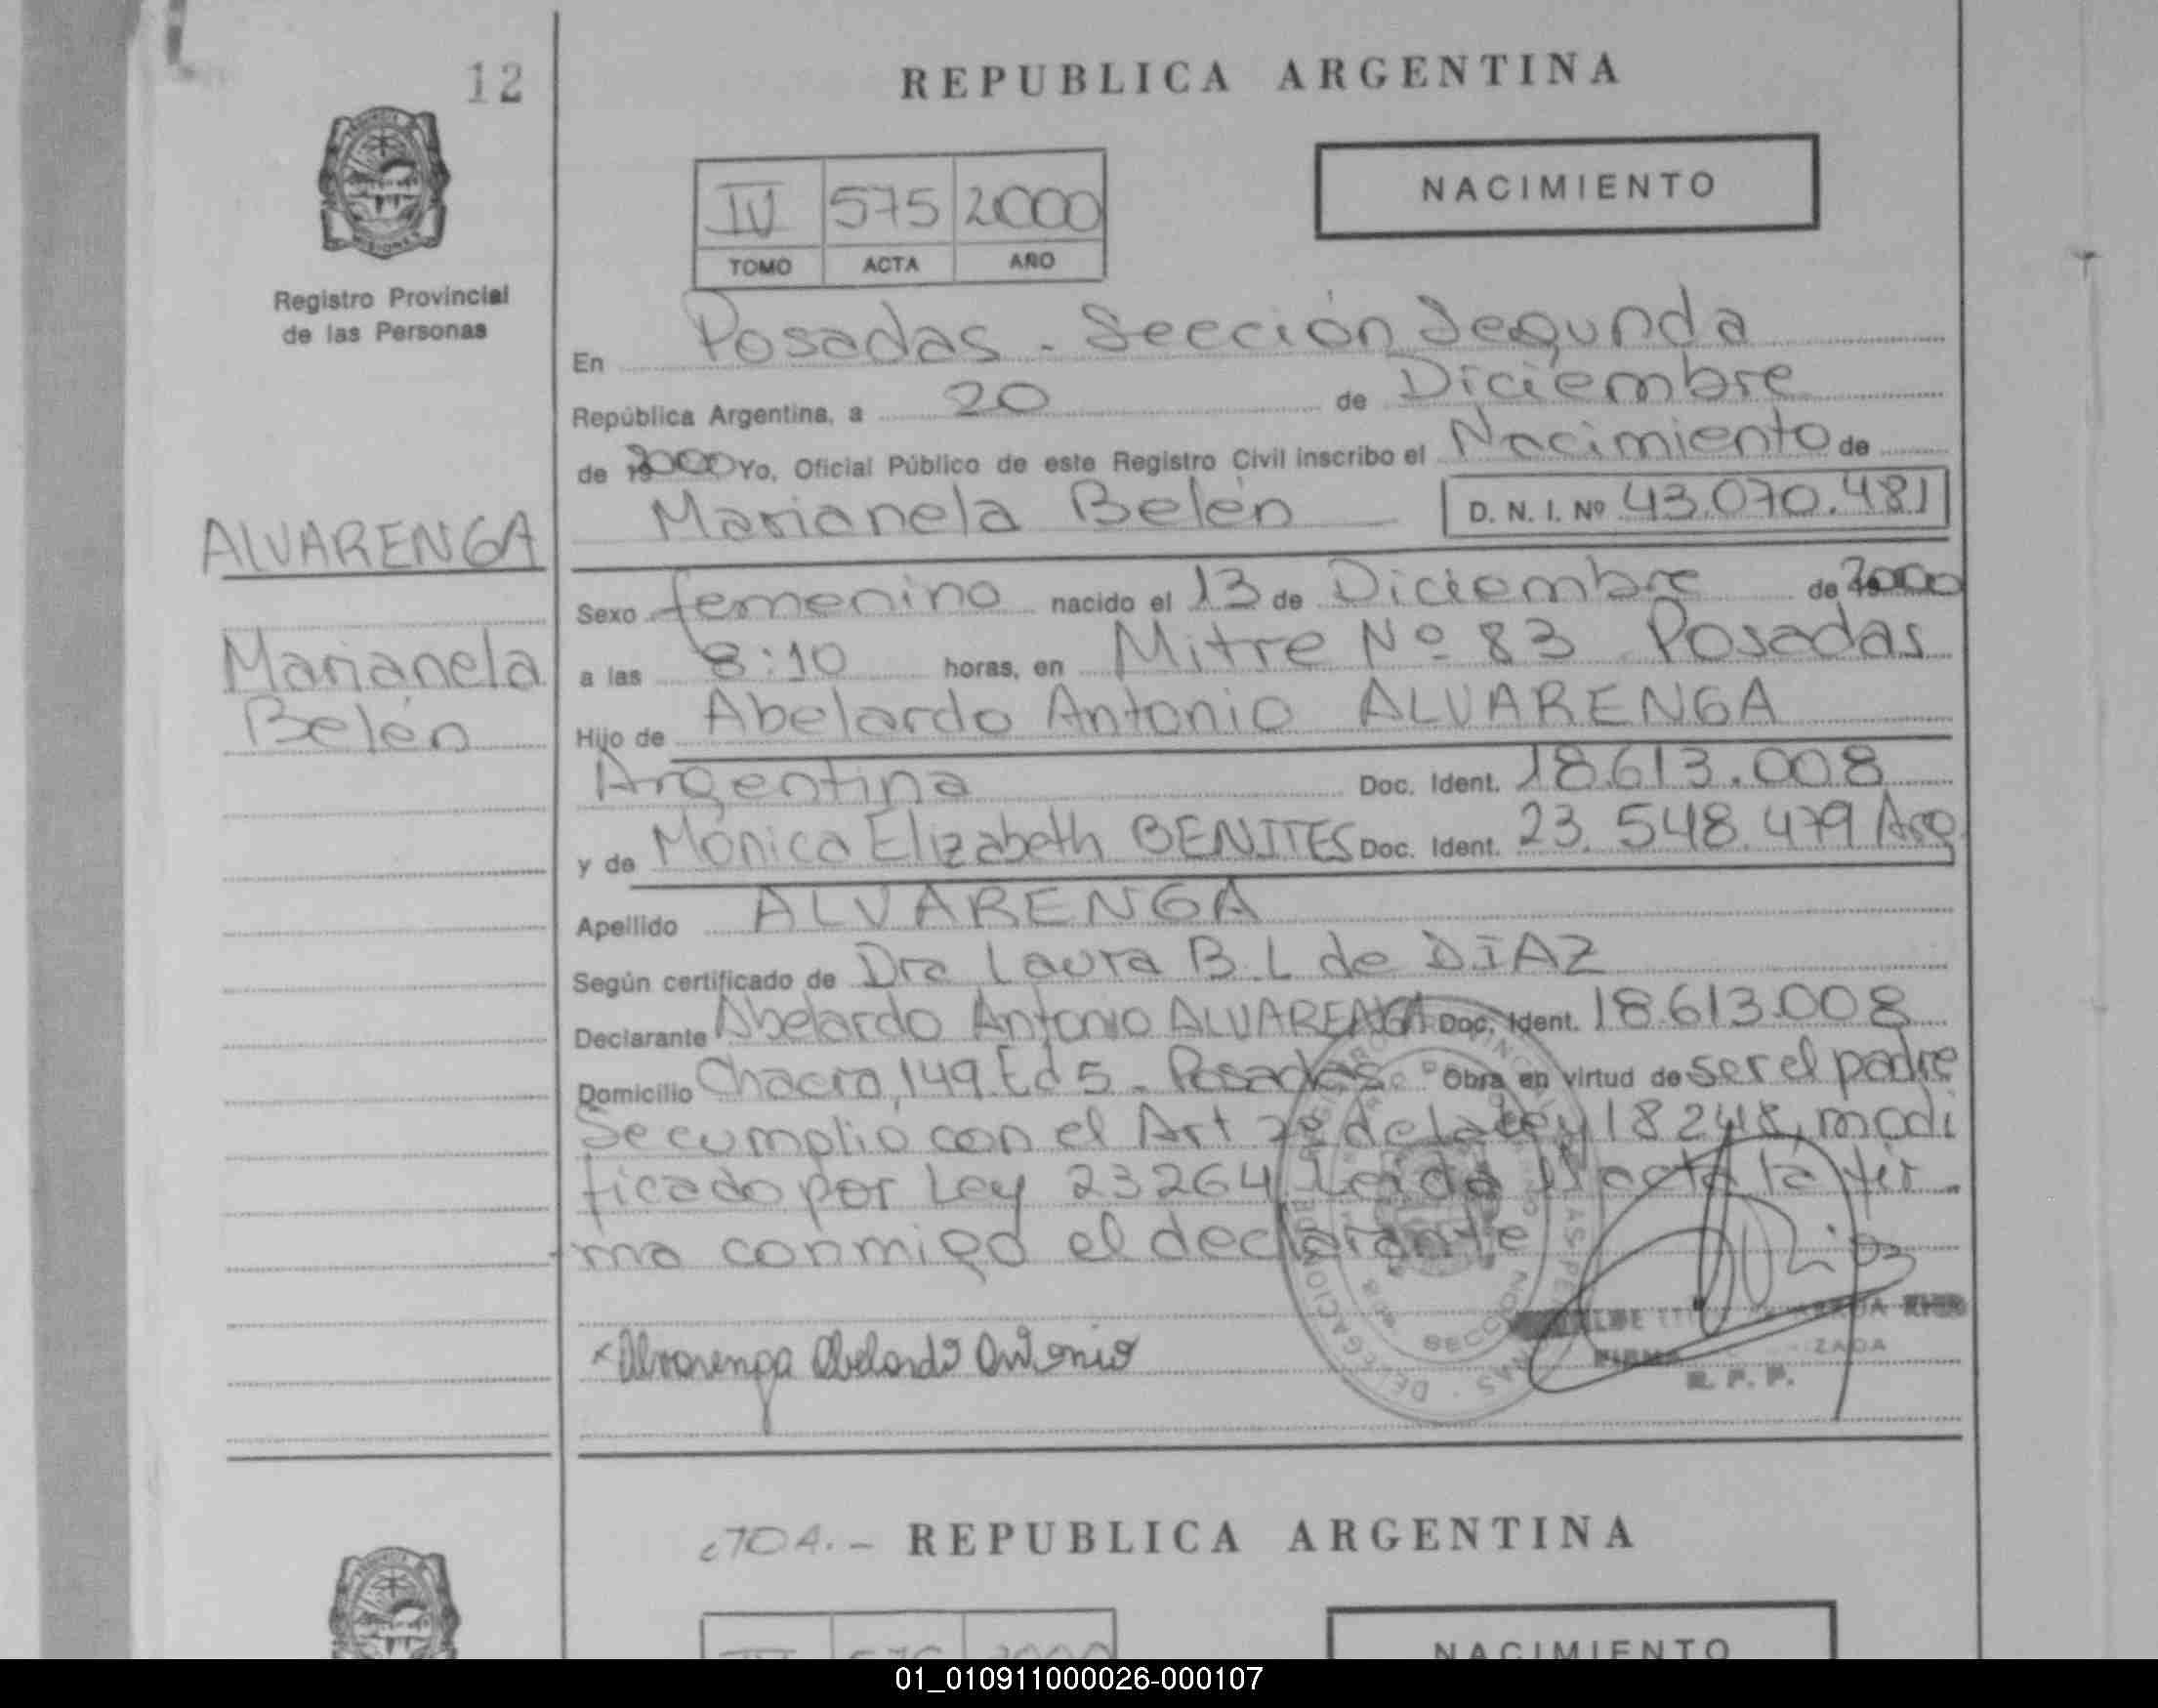 12
REPUBLICA ARGENTINA
NACIMIENTO
IV 575 2000
TOMO ACTA AÑO
Registro Provincial
de las Personas
En Posadas - Sección Segunda
República Argentina, a 20 de Diciembre
de 2000 Yo, Oficial Público de este Registro Civil inscribo el Nacimiento de
Marianela Belén D. N. I. Nº 43.070.481
ALVARENGA
Marianela
Belén
Sexo femenino nacido el 13 de Diciembre de 2000
a las 8:10 horas, en Mitre Nº 83 Posadas
Hijo de Abelardo Antonio ALVARENGA
Argentina Doc. Ident. 18.613.008
y de Mónica Elizabeth BENITES Doc. Ident. 23.548.479 Arg
Apellido ALVARENGA
Según certificado de Dra Laura B. L de DIAZ
Declarante Abelardo Antonio ALVARENGA Doc. Ident. 18.613.008
Domicilio Chacra 149 Ed 5 - Posadas Obra en virtud de ser el padre
Se cumplio con el Art 2º de la Ley 18248, modi
ficado por Ley 23264 Leida el acta la fir
ma conmigo el declarante
x Alvarenga Abelardo Antonio
FIRMA
R. P. P.
REPUBLICA ARGENTINA
NACIMIENTO
01_010911000026-000107